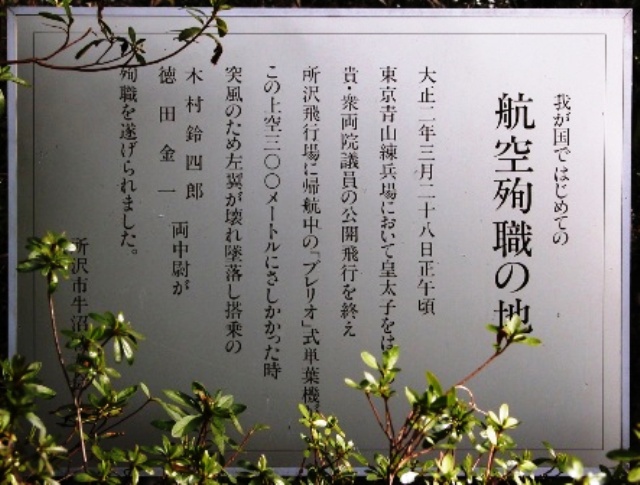 我が国ではじめての
航空殉職の地
大正二年三月二十八日正午頃
東京青山練兵場において皇太子をは
貴・衆両院議員の公開飛行を終え
所沢飛行場に帰航中の『ブレリオ』式単葉機が
この上空三〇〇メートルにさしかかった時
突風のため左翼が壊れ墜落し搭乗の
木村鈴四郎
徳田金一 両中尉が
殉職を遂げられました。
所沢市牛沼